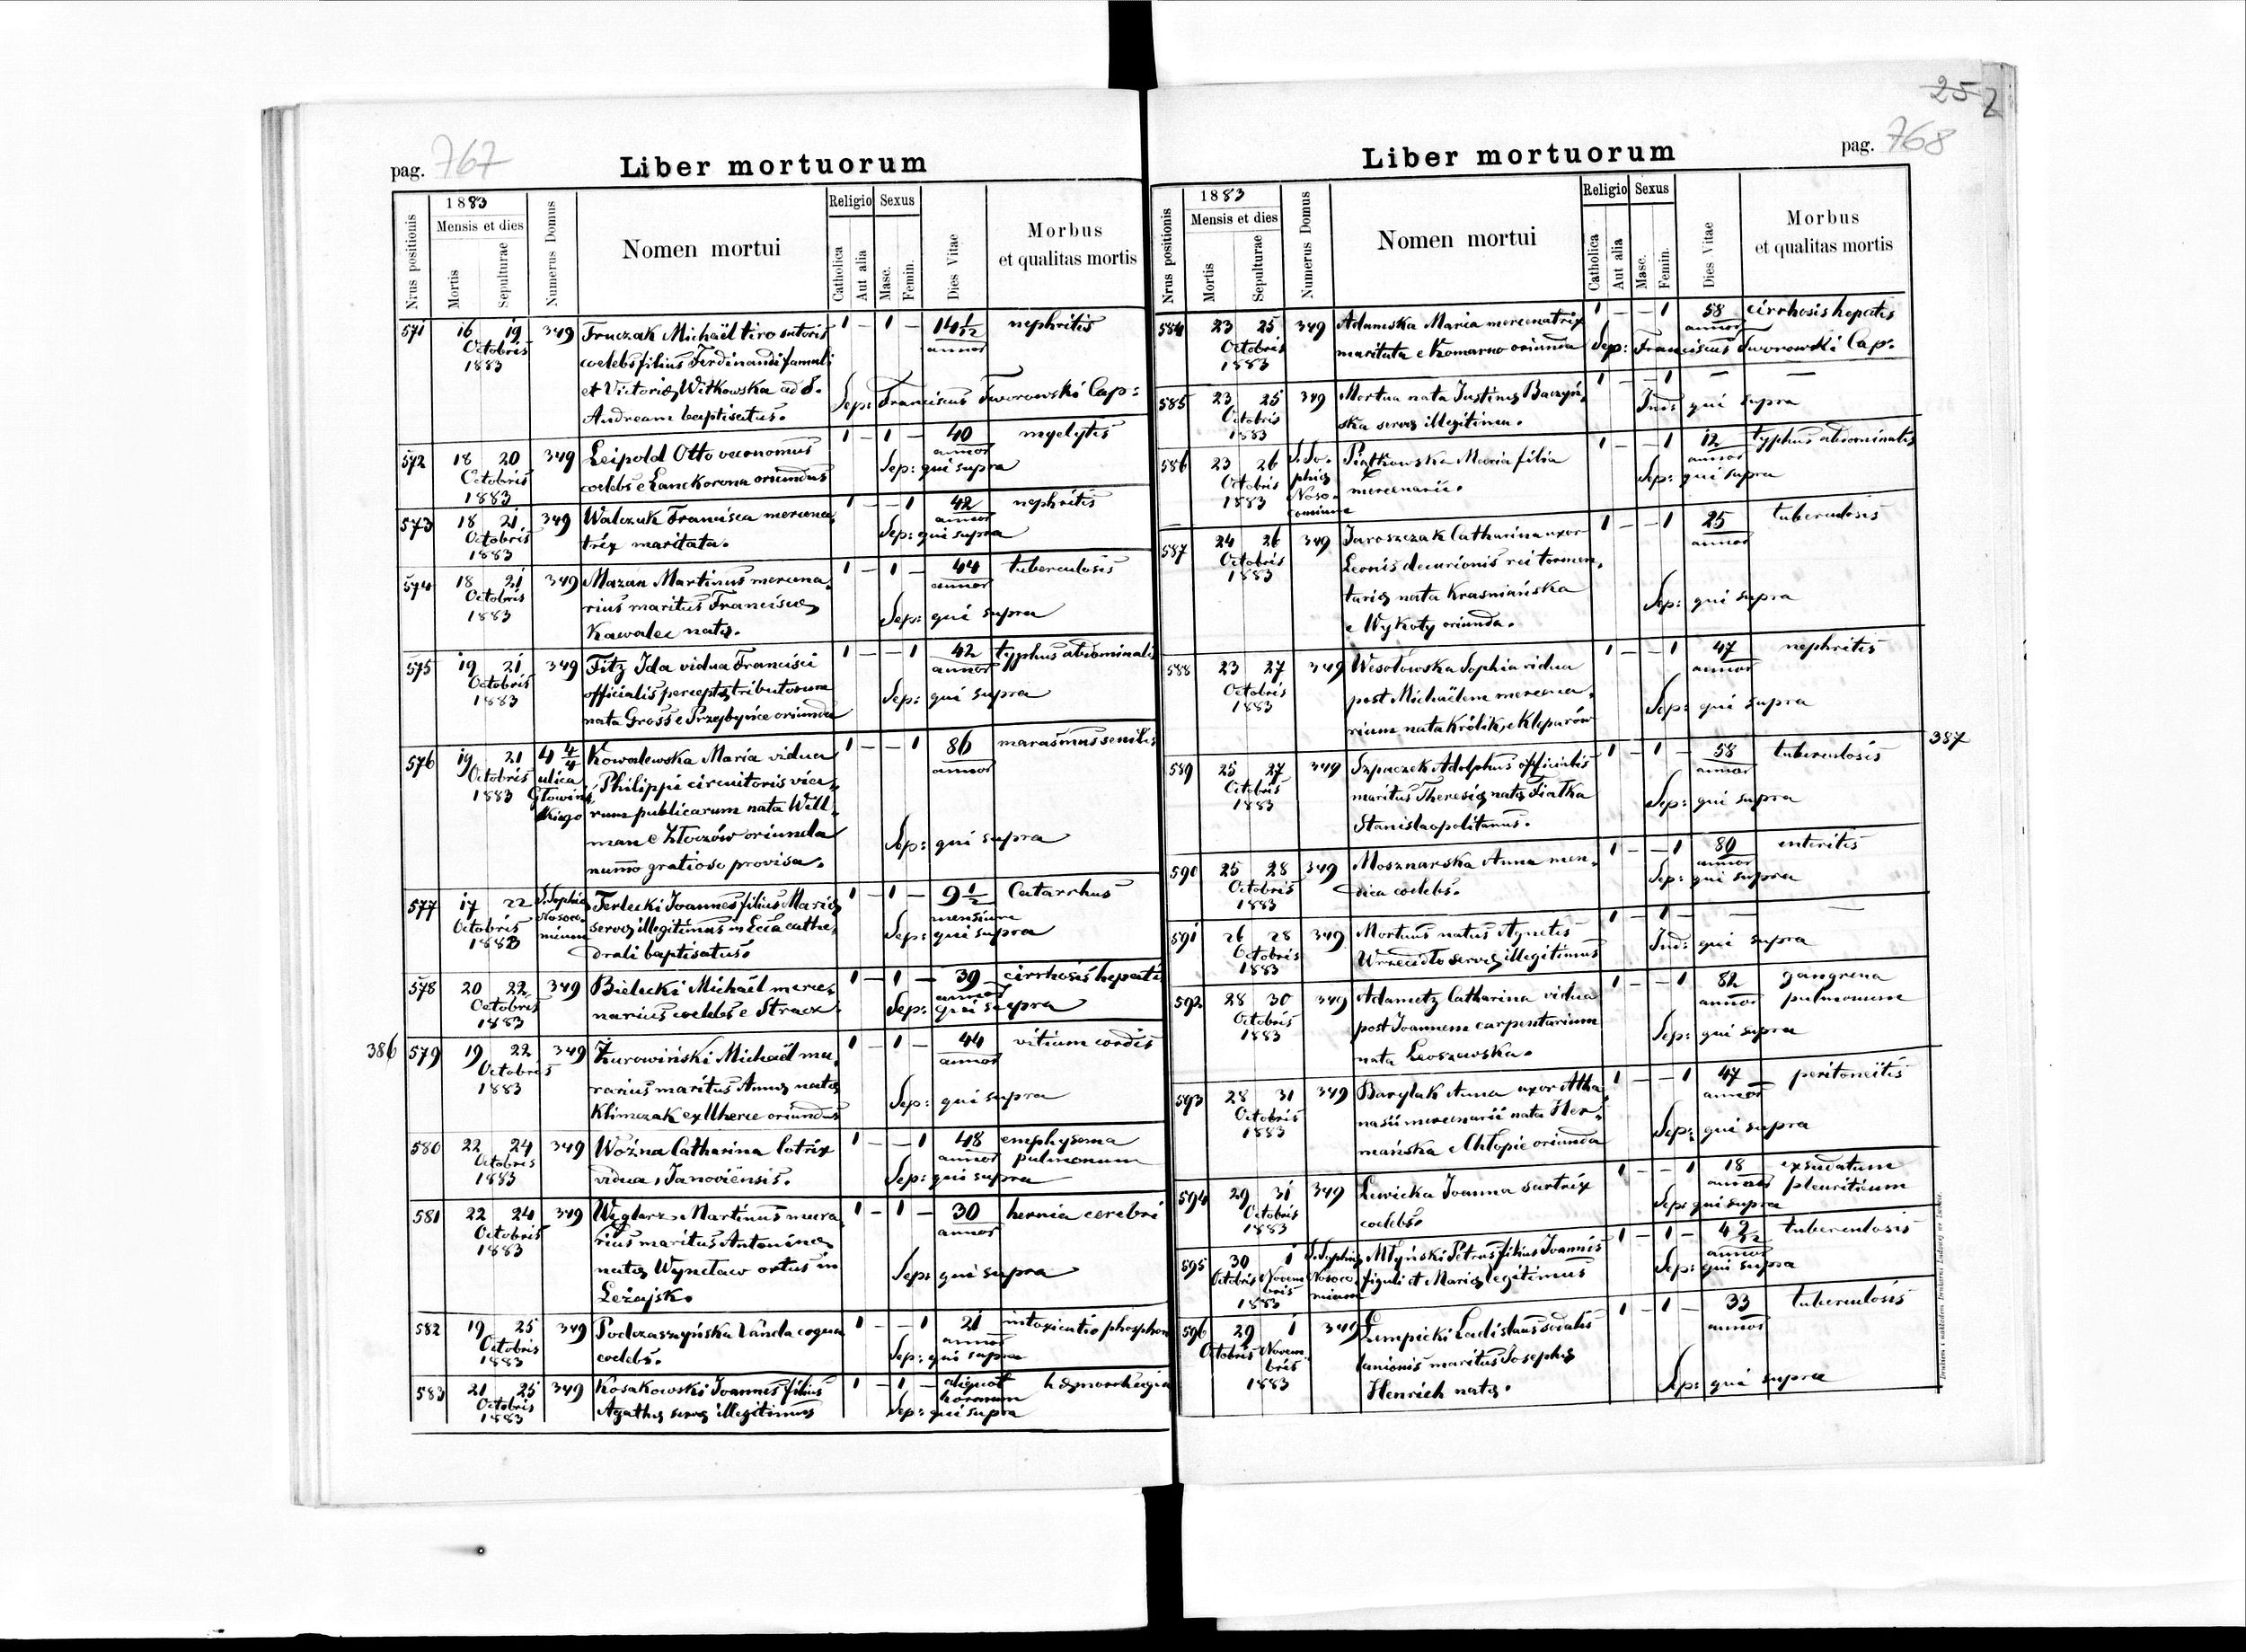 252
pag. 767
Liber mortuorum
Nrus positionis
1883
Mensis et dies
Mortis
Sepulturae
Numerus Domus
Nomen mortui
Religio
Catholica
Aut alia
Sexus
Masc.
Femin.
Dies Vitae
Morbus
et qualitas mortis
571 16 19 349 Fruczak Michaël tiro sutoris 1 – 1 – 14 1/2 nephritis
Octobris coelebs filius Ferdinandi famuli annor
1883 et Victoriæ Witkowska ad S. Sep: Franciscus Tworowski Cap:
Andream baptisatus.
572 18 20 349 Leipold Otto oeconomus 1 – 1 – 40 myelytis
Octobris coelebs e Lanckorona oriundus annor
1883 Sep: qui supra
573 18 21 349 Walczuk Francisca mercena, 1 – – 1 42 nephritis
Octobris trix maritata. annor
1883 Sep: qui supra
574 18 21 349 Mazan Martinus mercena, 1 – 1 – 44 tuberculosis
Octobris rius maritus Franciscæ annor
1883 Kawalec natæ. Sep: qui supra
575 19 21 349 Fitz Ida vidua Francisci 1 – – 1 42 typhus abdominalis
Octobris officialis percept. tributorum annor
1883 nata Gross e oriunda Sep: qui supra
576 19 21 4 4/4 Kowalewska Maria vidua 1 – – 1 86 marasmus senilis
Octobris ulica Philippi circuitoris via, annor
1883 Głowiń, rum publicarum nata Will,
skiego man e Złoczów oriunda Sep: qui supra
nummo gratioso provisa.
577 17 22 S. Sophiæ Terlecki Joannes filius Mariæ 1 – 1 – 9 1/2 Catarrhus
Octobris Nosoco, servæ illegitimus in Eccia cathe, mensium
1883 mium drali baptisatus. Sep: qui supra
578 20 22 349 Bielecki Michaël merce, 1 – 1 – 39 cirrhosis hepatis
Octobris narius coelebs e annor
1883 Sep: qui supra
386
579 19 22 349 Żurowiński Michaël mu, 1 – 1 – 44 vitium cordis
Octobris rarius maritus Annæ natæ annor
1883 Klimczak ex Uherce oriundus Sep: qui supra
580 22 24 349 Woźna Catharina lotrix 1 – – 1 48 emphysema
Octobris vidua, Janoviensis. annor pulmonum
1883 Sep: qui supra
581 22 24 349 Węglarz Martinus mura, 1 – 1 – 30 hernia cerebri
Octobris rius maritus Antoninæ annor
1883 natæ ortus in Sep: qui supra
Leżajsk.
582 19 25 349 Podczaszyńska Vanda coqua 1 – – 1 21 intoxicatio phosphor
Octobris coelebs. annor
1883 Sep: qui supra
583 21 25 349 Kosakowski Joannes filius 1 – 1 – aliquot hæmorrhagia
Octobris Agathæ servæ illegitimus horarum
1883 Sep: qui supra
pag. 768
Liber mortuorum
Nrus positionis
1883
Mensis et dies
Mortis
Sepulturae
Numerus Domus
Nomen mortui
Religio
Catholica
Aut alia
Sexus
Masc.
Femin.
Dies Vitae
Morbus
et qualitas mortis
584 23 25 349 Adamska Maria mercenatrix 1 – – 1 58 cirrhosis hepatis
Octobris maritata e Komarno oriunda annor
1883 Sep: Franciscus Tworowski Cap:
585 23 25 349 Mortua nata Justinæ Baczyń, 1 – – 1 – –
Octobris ska servæ illegitima. Ind: qui supra
1883
586 23 26 S. So, Piątkowska Maria filia 1 – – 1 12 typhus abdominalis
Octobris phiæ mercenarii. annor
1883 Noso, Sep: qui supra
comium
587 24 26 349 Jaroszczak Catharina uxor 1 – – 1 25 tuberculosis
Octobris Leonis decurionis rei tormen, annor
1883 tariæ nata Krasniańska Sep: qui supra
e Wykoty oriunda.
588 23 27 349 Wesołowska Sophia vidua 1 – – 1 47 nephritis
Octobris post Michaëlem mercena, annor
1883 rium nata Królik, e Kleparów Sep: qui supra
387
589 25 27 349 Szpaczek Adolphus officialis 1 – 1 – 58 tuberculosis
Octobris maritus Theresiæ natæ Fiałka annor
1883 Stanislaopolitanus. Sep: qui supra
590 25 28 349 Mosznarska Anna men, 1 – – 1 80 enteritis
Octobris dica coelebs. annor
1883 Sep: qui supra
591 26 28 349 Mortuus natus Agnetis 1 – 1 – – –
Octobris servæ illegitimus Ind: qui supra
1883
592 28 30 349 Adametz Catharina vidua 1 – – 1 82 gangrena
Octobris post Joannem carpentarium annor pulmonum
1883 nata Leoszowska. Sep: qui supra
593 28 31 349 Barylak Anna uxor Atha, 1 – – 1 47 peritoneitis
Octobris nasii mercenarii nata Her, annor
1883 mańska e Chłopie oriunda Sep: qui supra
594 29 31 349 Lewicka Joanna sartrix 1 – – 1 18 exsudatum
Octobris coelebs. annor pleuriticum
1883 Sep: qui supra
595 30 1 S. Sophiæ Młyński Petrus filius Joannis 1 – 1 – 4 2/12 tuberculosis
Octobris Novem Nosoco, figuli et Mariæ legitimus annor
bris mium Sep: qui supra
1883
596 29 1 349 Łempicki Ladislaus sodalis 1 – 1 – 33 tuberculosis
Octobris Novem, lanionis maritus Josephæ annor
bris Henrich natæ. Sep: qui supra
1883